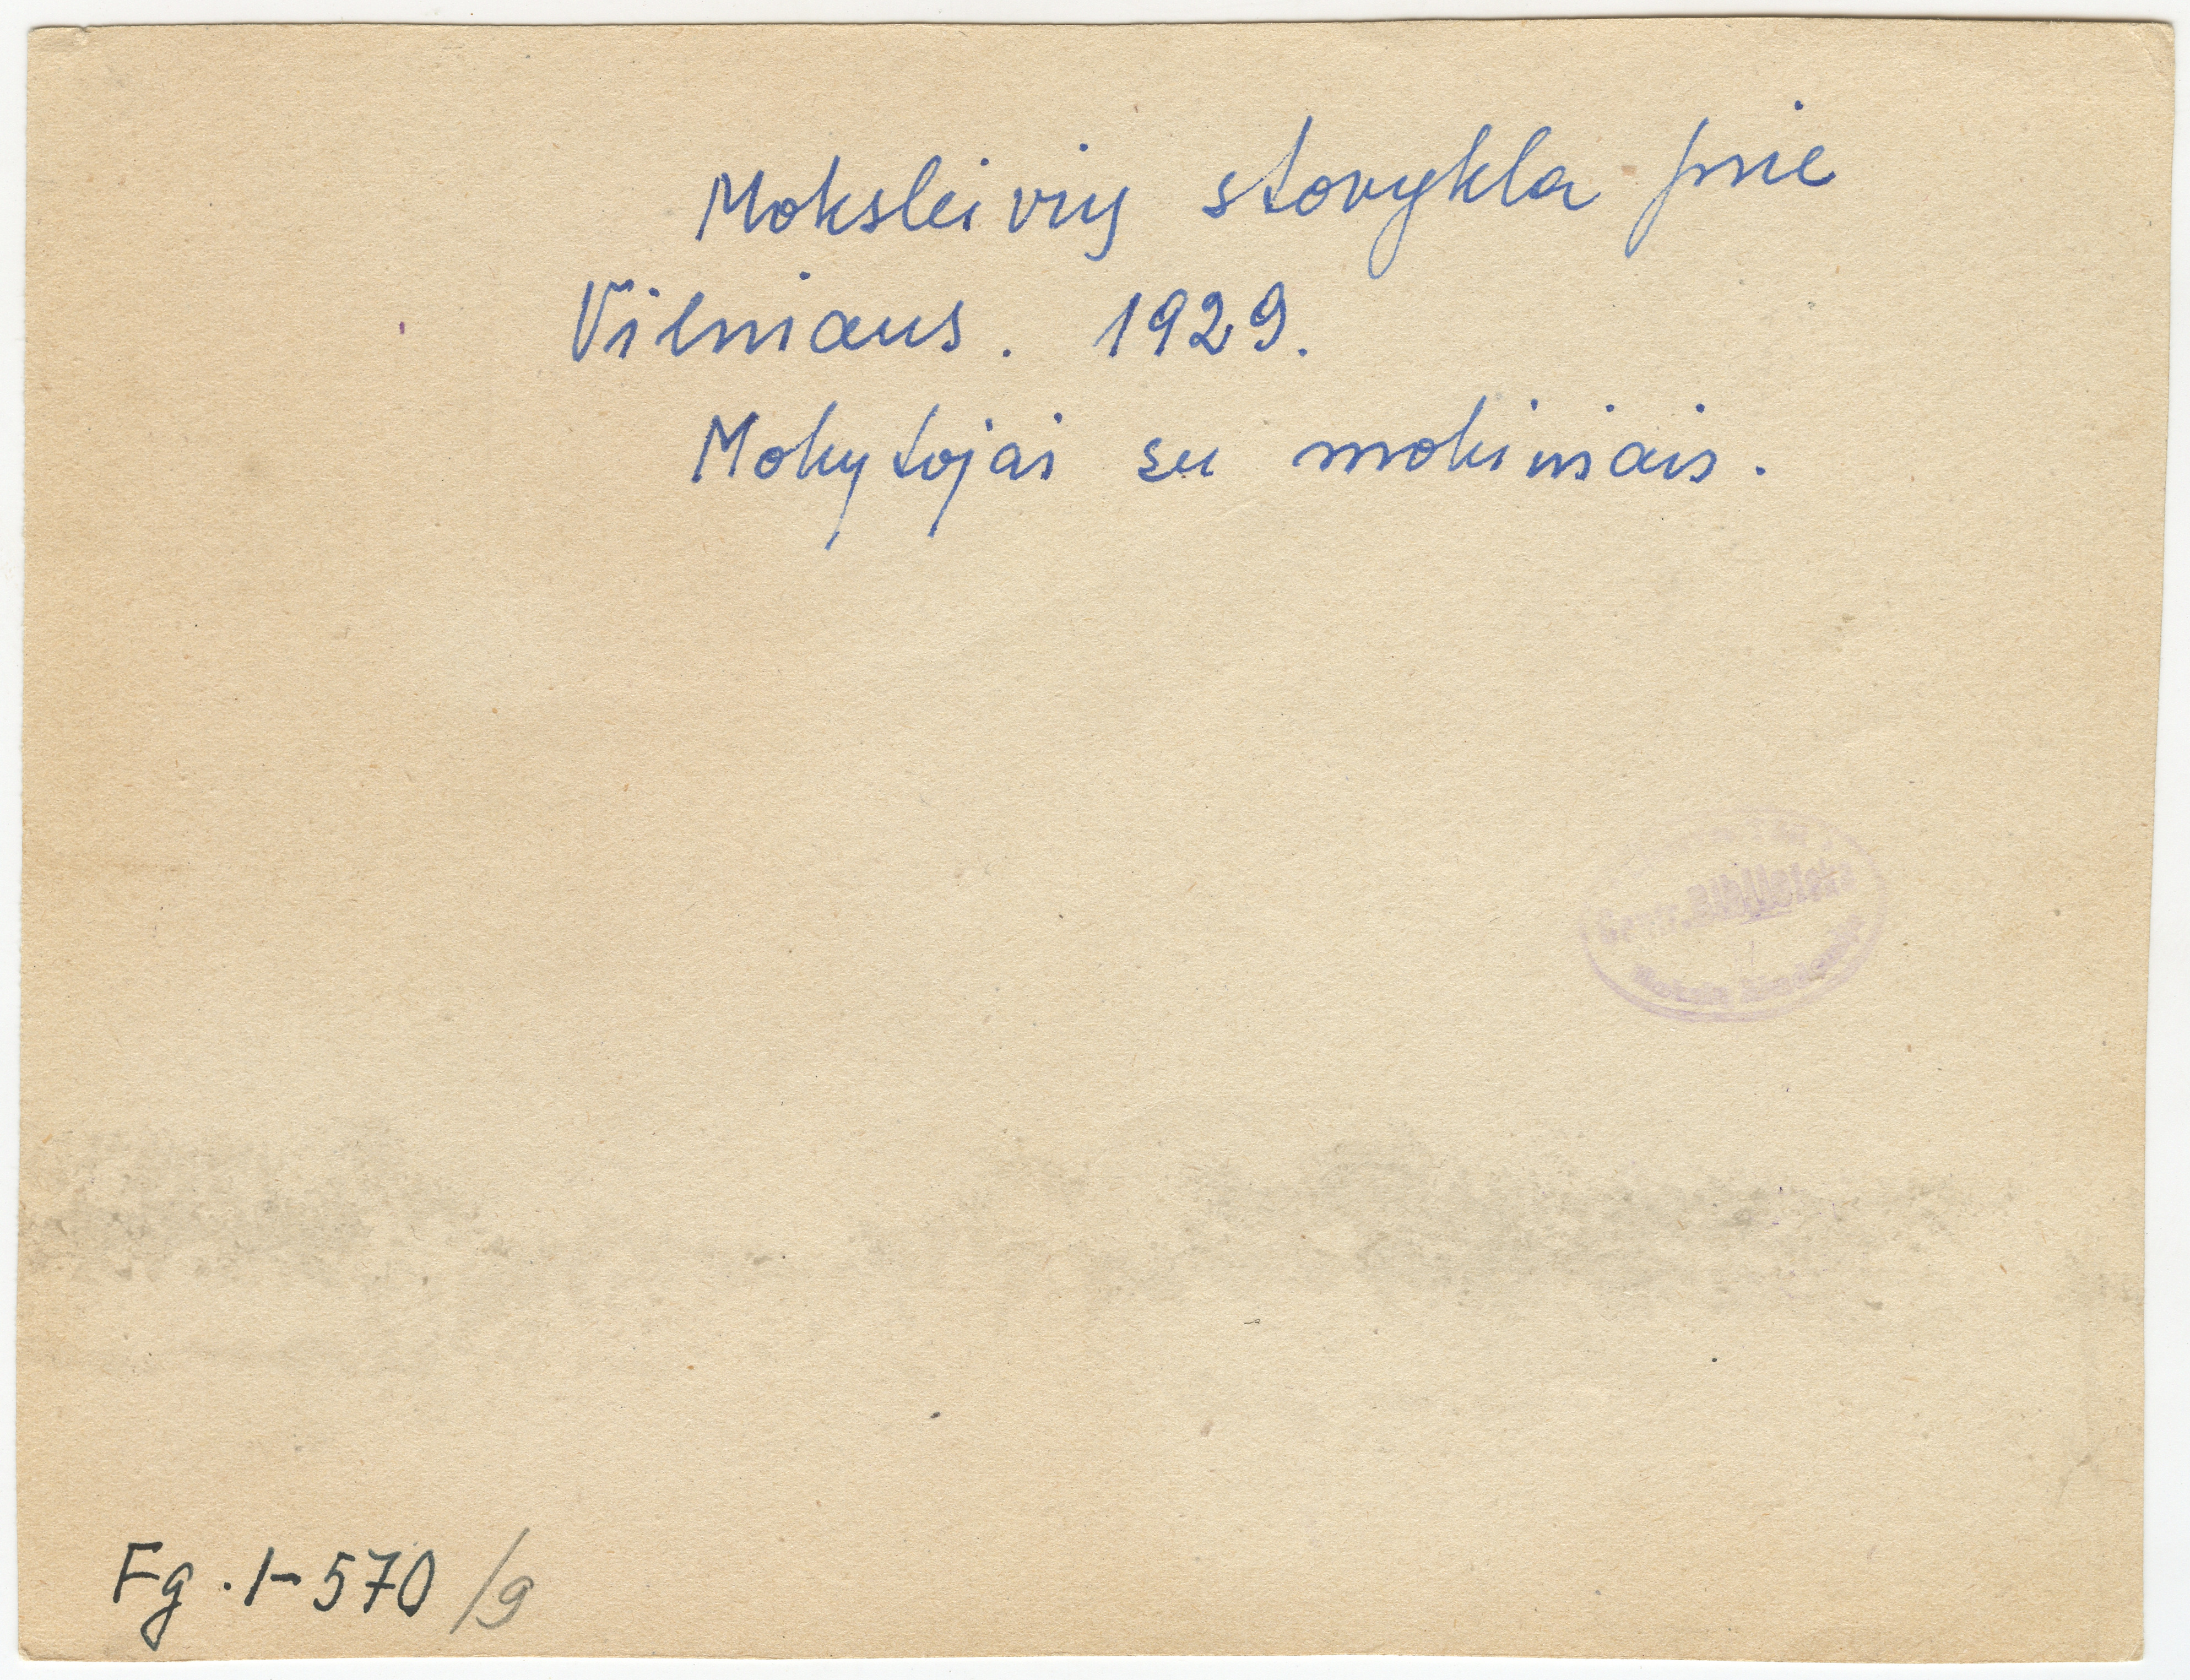 Moksleivių stovykla prie
Vilniaus. 1929.
Mokytojai su mokiniais.
Fg.1-570/9